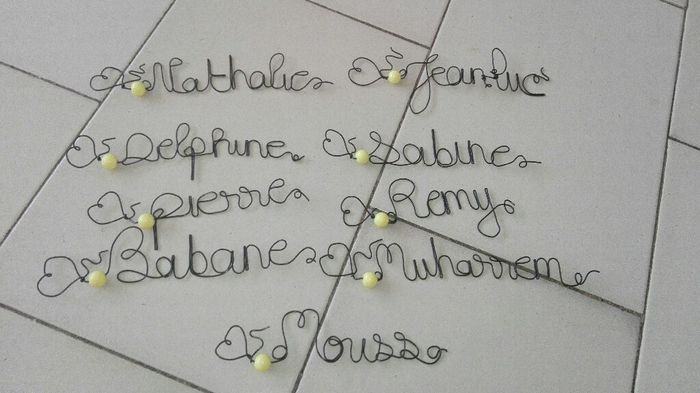 Nathalie Jean.luc
Delphine Sabine
pierre Remy
Babane Muharrem
Mouss